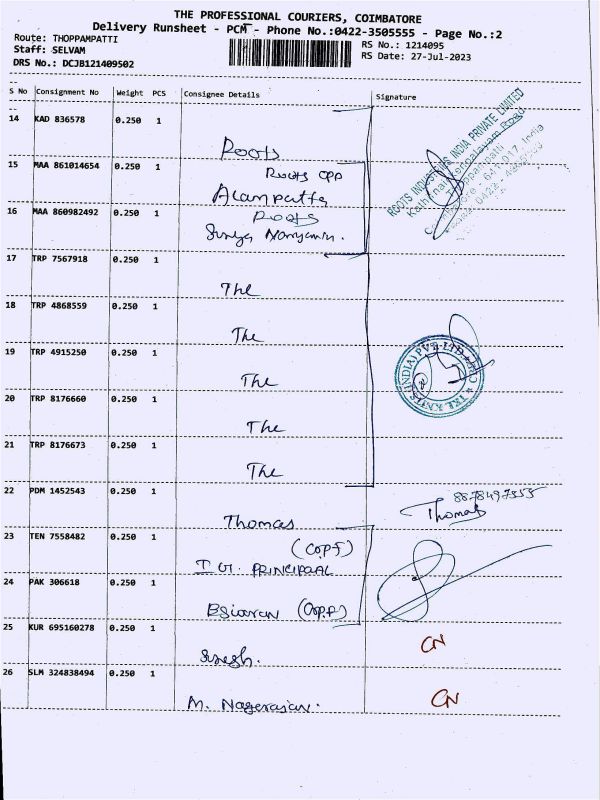 THE PROFESSIONAL COURIERS, COIMBATORE
Delivery Runsheet - PCM - Phone No.:0422-3505555 - Page No.:2
Route: THOPPAMPATTI
Staff: SELVAM
DRS No.: DCJB121409502
RS No.: 1214095
RS Date: 27-Jul-2023
S No Consignment No Weight PCS Consignee Details Signature
14 KAD 836578 0.250 1
Roots
15 MAA 861014654 0.250 1
Roots opp
Alampatta
16 MAA 860982492 0.250 1
Roots
17 TRP 7567918 0.250 1
The
18 TRP 4868559 0.250 1
The
19 TRP 4915250 0.250 1
The
20 TRP 8176660 0.250 1
The
21 TRP 8176673 0.250 1
The
22 PDM 1452543 0.250 1
Thomas
Thomas
23 TEN 7558482 0.250 1
PRINCIPAAL
24 PAK 306618 0.250 1
25 KUR 695160278 0.250 1
Suresh.
CN
26 SLM 324838494 0.250 1
M. Nagerajan.
CN
ROOTS INDUSTRIES INDIA PRIVATE LIMITED